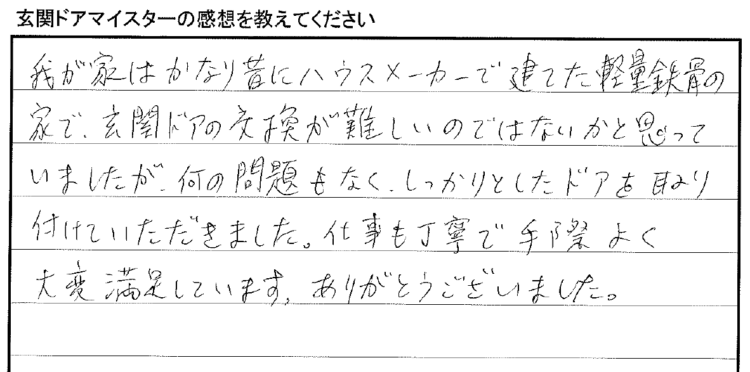 玄関ドアマイスターの感想を教えてください
我が家はかなり昔にハウスメーカーで建てた軽量鉄骨の
家で、玄関ドアの交換が難しいのではないかと思って
いましたが、何の問題もなく、しっかりとしたドアを取り
付けていただきました。仕事も丁寧で手際よく
大変満足しています。ありがとうございました。